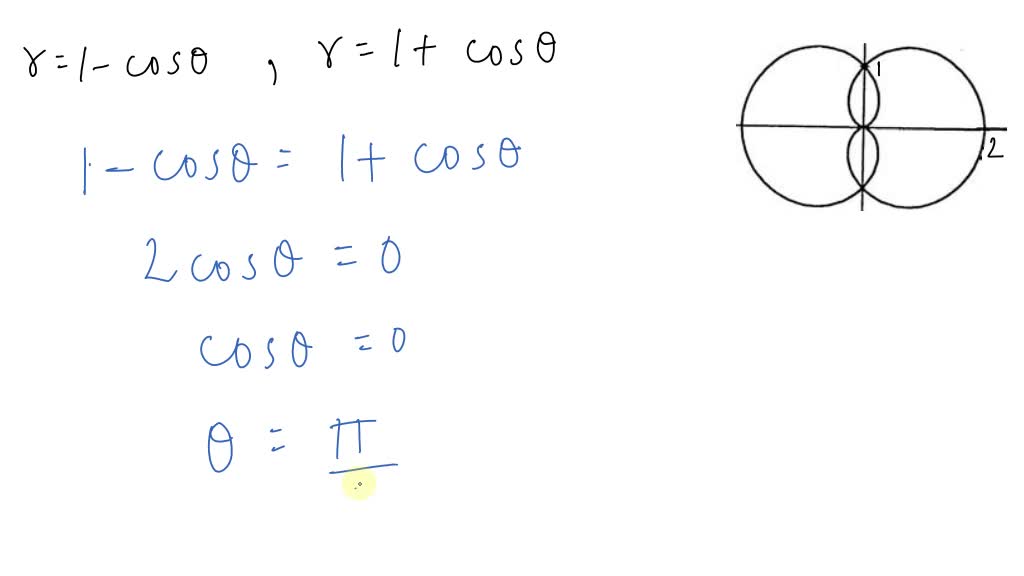 r=1-cosθ , r=1+ cosθ
1
2
1-cosθ = 1+ cosθ
2cosθ = 0
cosθ = 0
θ = π